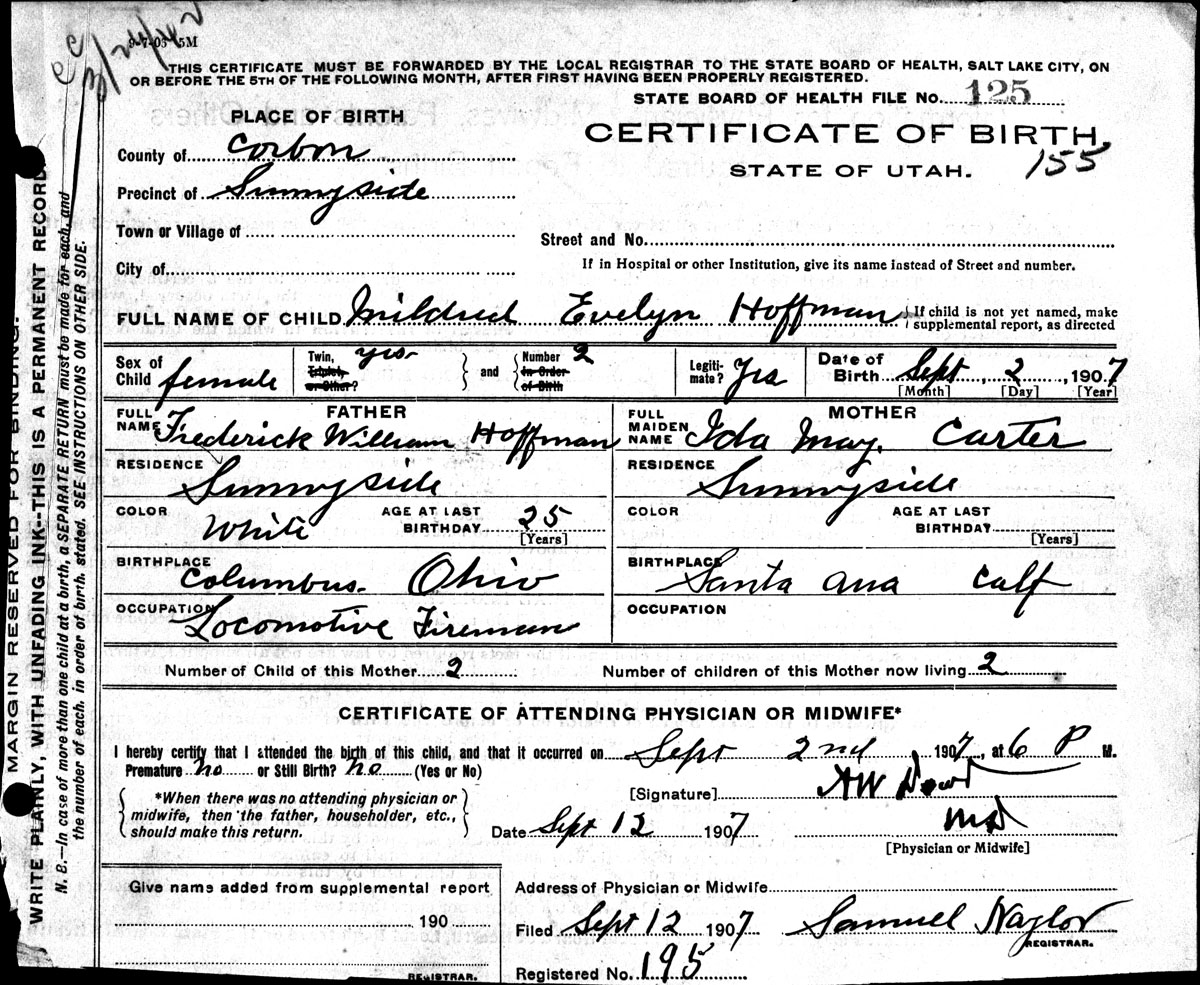 3/24/42
9-7-05 5M
THIS CERTIFICATE MUST BE FORWARDED BY THE LOCAL REGISTRAR TO THE STATE BOARD OF HEALTH, SALT LAKE CITY, ON
OR BEFORE THE 5TH OF THE FOLLOWING MONTH, AFTER FIRST HAVING BEEN PROPERLY REGISTERED.
STATE BOARD OF HEALTH FILE No. 125
PLACE OF BIRTH
CERTIFICATE OF BIRTH
County of Corbon
STATE OF UTAH. 155
Precinct of Sunnyside
Town or Village of
Street and No.
City of
If in Hospital or other Institution, give its name instead of Street and number.
FULL NAME OF CHILD Mildred Evelyn Hoffman If child is not yet named, make
supplemental report, as directed
Sex of Child female Twin, Triplet, or Other? yes and Number 2 In Order of Birth Legiti-mate? Yes Date of Birth Sept, 2, 1907
[Month] [Day] [Year]
FATHER MOTHER
FULL NAME Frederick William Hoffman FULL MAIDEN NAME Ida May. Carter
RESIDENCE RESIDENCE
Sunnyside Sunnyside
COLOR White AGE AT LAST BIRTHDAY 25 [Years] COLOR AGE AT LAST BIRTHDAY [Years]
BIRTHPLACE Columbus. Ohio BIRTHPLACE Santa ana Calf
OCCUPATION Locomotive Fireman OCCUPATION
Number of Child of this Mother 2 Number of children of this Mother now living 2
CERTIFICATE OF ATTENDING PHYSICIAN OR MIDWIFE*
I hereby certify that I attended the birth of this child, and that it occurred on Sept 2nd 1907, at 6 P M.
Premature no or Still Birth? no (Yes or No)
*When there was no attending physician or
midwife, then the father, householder, etc.,
should make this return.
[Signature] AW
Date Sept 12 1907 MD
[Physician or Midwife]
Give name added from supplemental report
190
REGISTRAR.
Address of Physician or Midwife
Filed Sept 12 1907 Samuel Naylor
REGISTRAR.
Registered No. 195
MARGIN RESERVED FOR BINDING.
WRITE PLAINLY, WITH UNFADING INK--THIS IS A PERMANENT RECORD.
N. B.—In case of more than one child at a birth, a SEPARATE RETURN must be made for each, and
the number of each, in order of birth, stated. SEE INSTRUCTIONS ON OTHER SIDE.